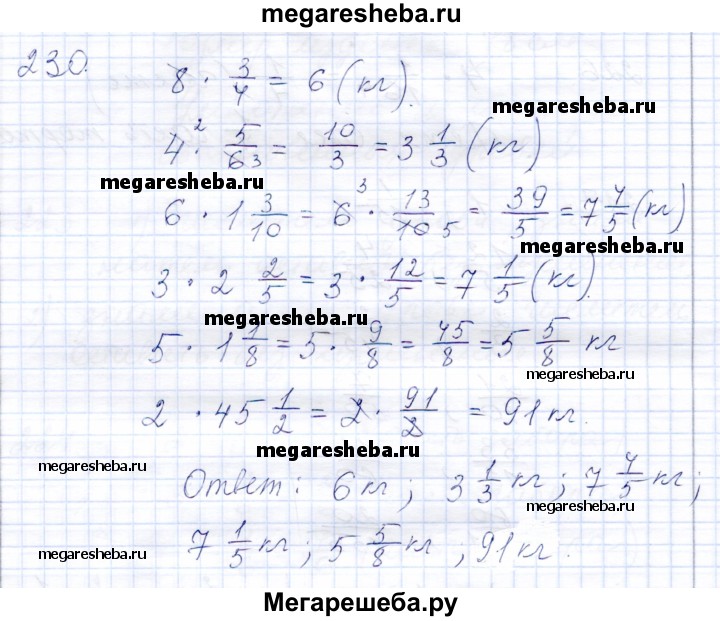 megaresheba.ru
230.
8 · 3/4 = 6 (кг).
megaresheba.ru
4² · 5/6 3 = 10/3 = 3 1/3 (кг)
megaresheba.ru
6 · 1 3/10 = 6³ · 13/10 5 = 39/5 = 7 4/5 (кг)
megaresheba.ru
3 · 2 2/5 = 3 · 12/5 = 7 1/5 (кг).
megaresheba.ru
5 · 1 1/8 = 5 · 9/8 = 45/8 = 5 5/8 кг
megaresheba.ru
2 · 45 1/2 = 2 · 91/2 = 91 кг.
megaresheba.ru
megaresheba.ru
Ответ: 6 кг; 3 1/3 кг; 7 4/5 кг;
7 1/5 кг; 5 5/8 кг; 91 кг.
megaresheba.ru
megaresheba.ru
Мегарешеба.ру